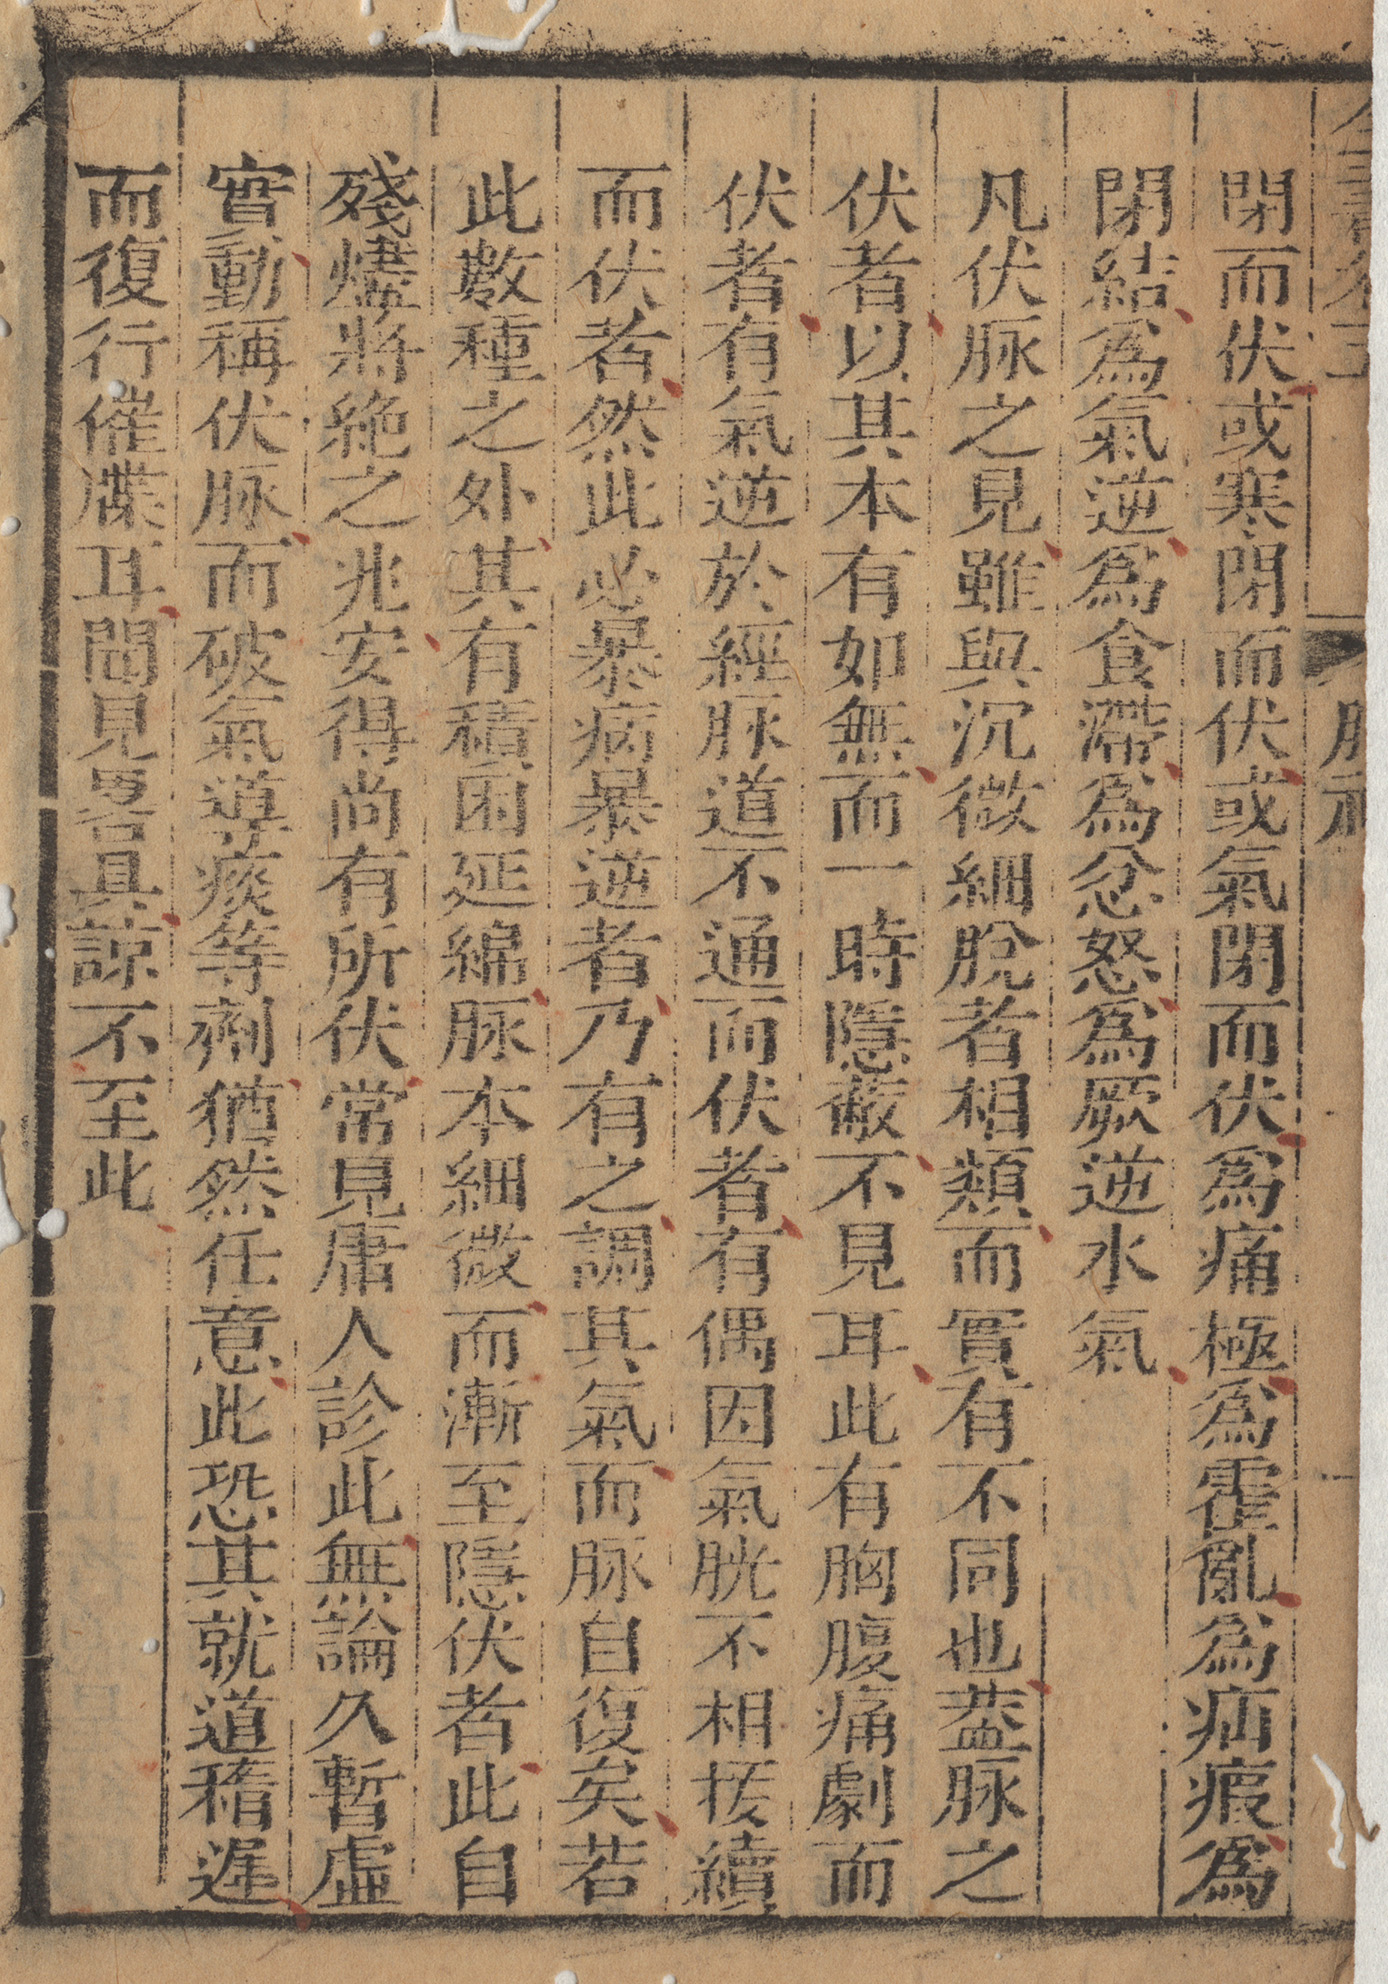 閉而伏或寒閉而伏或氣閉而伏爲痛極爲霍亂爲疝瘕爲
閉結爲氣逆爲食滯爲忿怒爲厥逆水氣
凡伏脉之見雖與沉微細脫者相類而實有不同也蓋脉之
伏者以其本有如無而一時隱蔽不見耳此有胸腹痛劇而
伏者有氣逆於經脉道不通而伏者有偶因氣脱不相接續
而伏者然此必暴病暴逆者乃有之調其氣而脉自復矣若
此數種之外其有積困延綿脉本細微而漸至隱伏者此自
殘燼將絶之兆安得尚有所伏常見庸人診此無論久暫虛
實動稱伏脉而破氣導痰等劑猶然任意此恐其就道稽遲
而復行催牒耳聞見畧具諒不至此
脉神